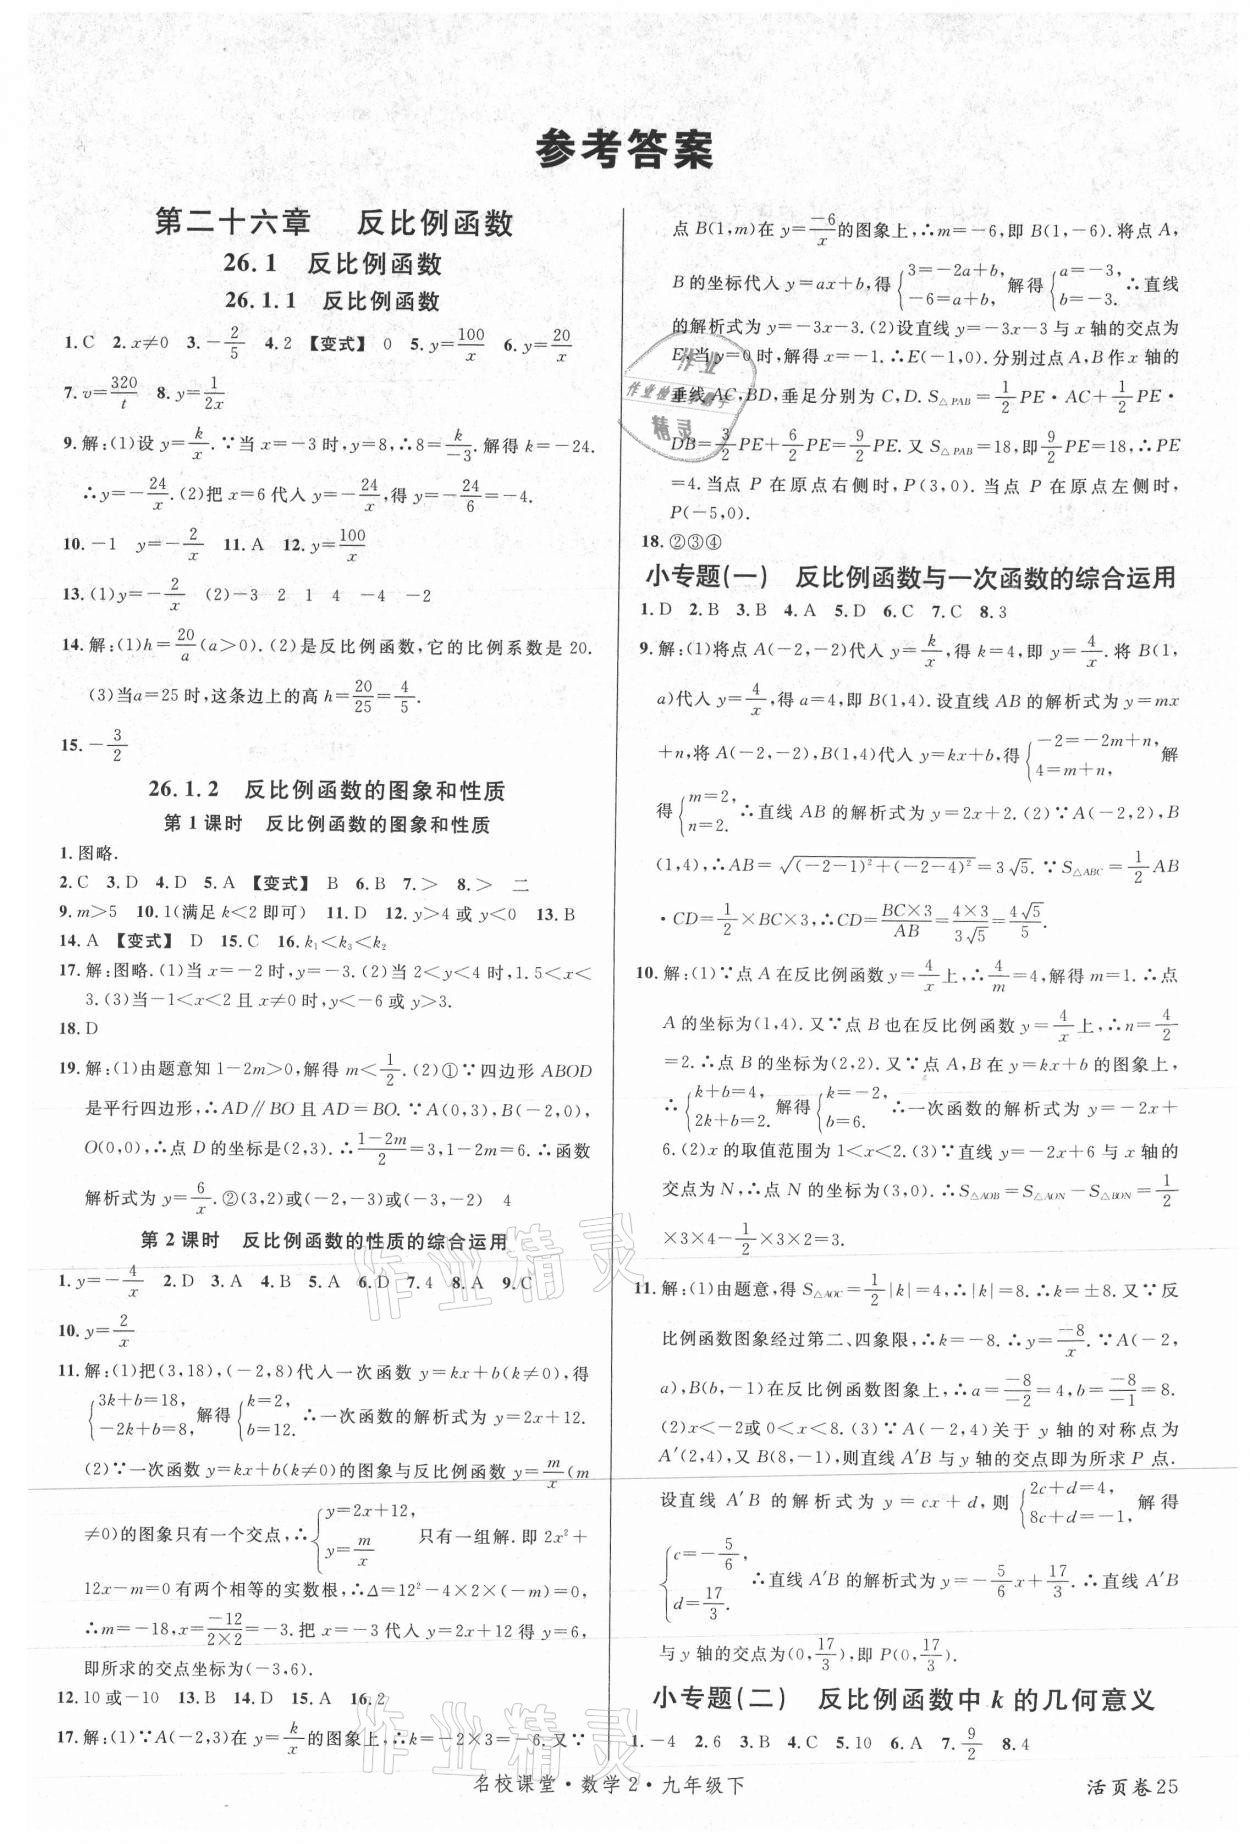 参考答案
第二十六章 反比例函数
26.1 反比例函数
26.1.1 反比例函数
1.C 2.x≠0 3.-2/5 4.2 【变式】 0 5.y=100/x 6.y=20/x
7.v=320/t 8.y=1/2x
9.解:(1)设 y=k/x.∵当 x=-3时,y=8,∴8=k/-3.解得 k=-24.
∴y=-24/x.(2)把 x=6代入 y=-24/x,得 y=-24/6=-4.
10.-1 y=-2/x 11.A 12.y=100/x
13.(1)y=-2/x (2)-3 2 1 4 -4 -2
14.解:(1)h=20/a(a>0).(2)是反比例函数,它的比例系数是 20.
(3)当a=25时,这条边上的高 h=20/25=4/5.
15.-3/2
26.1.2 反比例函数的图象和性质
第1课时 反比例函数的图象和性质
1.图略.
2.C 3.D 4.D 5.A 【变式】 B 6.B 7.> 8.> 二
9.m>5 10.1(满足 k<2即可) 11.D 12.y>4或 y<0 13.B
14.A 【变式】 D 15.C 16.k₁<k₃<k₂
17.解:图略.(1)当 x=-2时,y=-3.(2)当 2<y<4时,1.5<x<
3.(3)当-1<x<2且 x≠0时,y<-6或 y>3.
18.D
19.解:(1)由题意知 1-2m>0,解得 m<1/2.(2)①∵四边形 ABOD
是平行四边形,∴AD∥BO且 AD=BO.∵A(0,3),B(-2,0),
O(0,0),∴点 D的坐标是(2,3).∴1-2m/2=3,1-2m=6.∴函数
解析式为 y=6/x.②(3,2)或(-2,-3)或(-3,-2) 4
第2课时 反比例函数的性质的综合运用
1.y=-4/x 2.D 3.A 4.B 5.A 6.D 7.4 8.A 9.C
10.y=2/x
11.解:(1)把(3,18),(-2,8)代入一次函数 y=kx+b(k≠0),得
{3k+b=18, -2k+b=8, 解得{k=2, b=12. ∴一次函数的解析式为 y=2x+12.
(2)∵一次函数 y=kx+b(k≠0)的图象与反比例函数 y=m/x(m
≠0)的图象只有一个交点,∴{y=2x+12, y=m/x 只有一组解.即 2x²+
12x-m=0有两个相等的实数根,∴Δ=12²-4×2×(-m)=0,
∴m=-18,x=-12/2×2=-3.把 x=-3代入 y=2x+12得 y=6,
即所求的交点坐标为(-3,6).
12.10或-10 13.B 14.D 15.A 16.2
17.解:(1)∵A(-2,3)在 y=k/x的图象上,∴k=-2×3=-6.又∵
点 B(1,m)在 y=-6/x的图象上,∴m=-6,即 B(1,-6).将点 A,
B的坐标代入 y=ax+b,得{3=-2a+b, -6=a+b, 解得{a=-3, b=-3. ∴直线
的解析式为 y=-3x-3.(2)设直线 y=-3x-3与 x轴的交点为
E,当 y=0时,解得 x=-1.∴E(-1,0).分别过点 A,B作 x轴的
垂线 AC,BD,垂足分别为 C,D.S△PAB=1/2PE·AC+1/2PE·
DB=3/2PE+6/2PE=9/2PE.又 S△PAB=18,即9/2PE=18,∴PE
=4.当点 P在原点右侧时,P(3,0).当点 P在原点左侧时,
P(-5,0).
18.②③④
小专题(一) 反比例函数与一次函数的综合运用
1.D 2.B 3.B 4.A 5.D 6.C 7.C 8.3
9.解:(1)将点 A(-2,-2)代入 y=k/x,得 k=4,即 y=4/x.将 B(1,
a)代入 y=4/x,得 a=4,即 B(1,4).设直线 AB的解析式为 y=mx
+n,将 A(-2,-2),B(1,4)代入 y=kx+b,得{-2=-2m+n, 4=m+n, 解
得{m=2, n=2. ∴直线 AB的解析式为 y=2x+2.(2)∵A(-2,2),B
(1,4),∴AB=√(-2-1)²+(-2-4)²=3√5.∵S△ABC=1/2AB
·CD=1/2×BC×3,∴CD=BC×3/AB=4×3/3√5=4√5/5.
10.解:(1)∵点 A在反比例函数 y=4/x上,∴4/m=4,解得 m=1.∴点
A的坐标为(1,4).又∵点 B也在反比例函数 y=4/x上,∴n=4/2
=2.∴点 B的坐标为(2,2).又∵点 A,B在 y=kx+b的图象上,
∴{k+b=4, 2k+b=2. 解得{k=-2, b=6. ∴一次函数的解析式为 y=-2x+
6.(2)x的取值范围为 1<x<2.(3)∵直线 y=-2x+6与 x轴的
交点为 N,∴点 N的坐标为(3,0).∴S△AOB=S△AON-S△BON=1/2
×3×4-1/2×3×2=3.
11.解:(1)由题意,得 S△AOC=1/2|k|=4,∴|k|=8.∴k=±8.又∵反
比例函数图象经过第二、四象限,∴k=-8.∴y=-8/x.∵A(-2,
a),B(b,-1)在反比例函数图象上,∴a=-8/-2=4,b=-8/-1=8.
(2)x<-2或0<x<8.(3)∵A(-2,4)关于 y轴的对称点为
A′(2,4),又 B(8,-1),则直线 A′B与 y轴的交点即为所求 P点.
设直线 A′B的解析式为 y=cx+d,则{2c+d=4, 8c+d=-1, 解得
{c=-5/6, d=17/3. ∴直线 A′B的解析式为 y=-5/6x+17/3.∴直线 A′B
与 y轴的交点为(0,17/3),即 P(0,17/3).
小专题(二) 反比例函数中 k 的几何意义
1.-4 2.6 3.B 4.C 5.10 6.A 7.9/2 8.4
名校课堂·数学2·九年级下
活页卷25
作业精灵
作业精灵